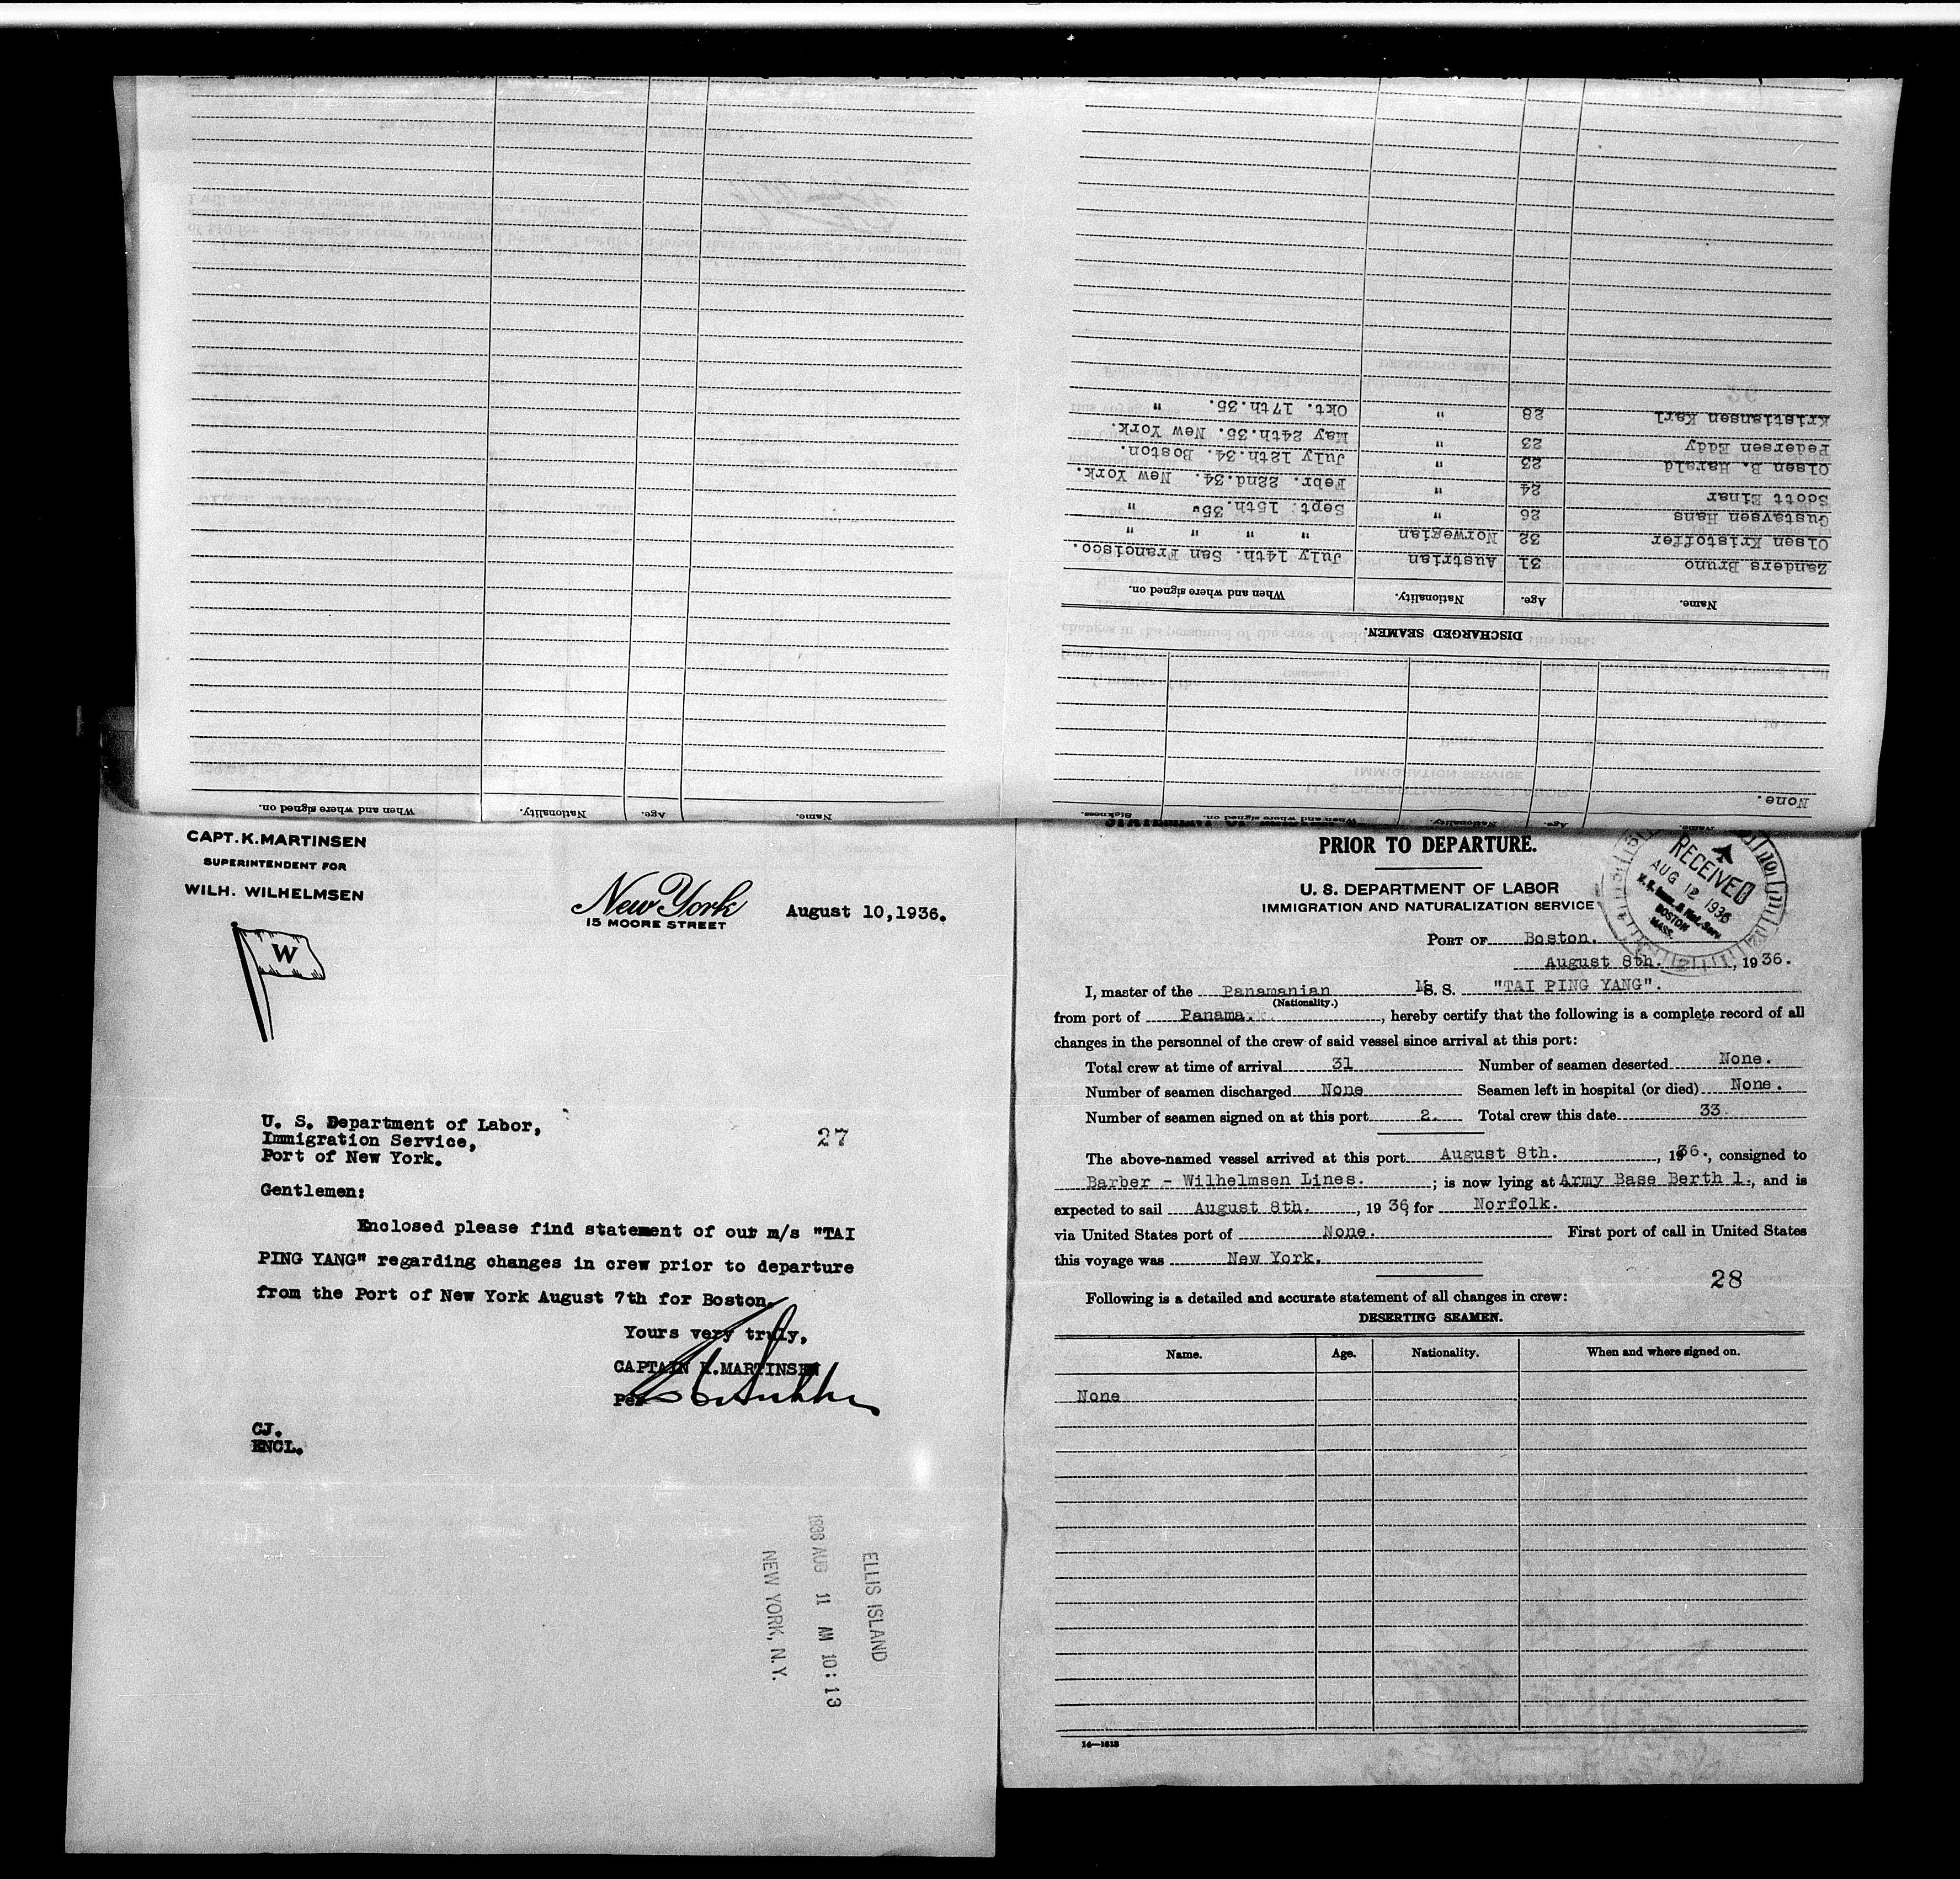 None.
Name.
Age.
Nationality.
When and where signed on.
Sickness.
DISCHARGED SEAMEN.
Name. Age. Nationality. When and where signed on.
Zanders Bruno 31 Austrian July 14th. San Francisco.
Olsen Kristoffer 32 Norwegian " " " "
Gustavsen Hans 26 " Sept. 15th.35. "
Scott Einar 24 " Febr. 22nd.34. New York.
Olsen B. Harald 23 " July 12th.34. Boston.
Pedersen Eddy 23 " May 24th.35. New York.
Kristiansen Karl 28 " Okt. 17th.35. "
Name. Age. Nationality. When and where signed on.
CAPT. K. MARTINSEN
SUPERINTENDENT FOR
WILH. WILHELMSEN
W
New York
15 MOORE STREET
August 10,1936.
U. S. Department of Labor,
Immigration Service,
Port of New York.
27
Gentlemen:
Enclosed please find statement of our m/s "TAI
PING YANG" regarding changes in crew prior to departure
from the Port of New York August 7th for Boston.
Yours very truly,
CAPTAIN K.MARTINSEN
Per
CJ.
ENCL.
ELLIS ISLAND
1936 AUG 11 AM 10:13
NEW YORK, N.Y.
PRIOR TO DEPARTURE.
U. S. DEPARTMENT OF LABOR
IMMIGRATION AND NATURALIZATION SERVICE
RECEIVED
AUG 12 1936
U. S. Imm. & Nat. Serv.
BOSTON
MASS.
PORT OF Boston.
August 8th., 1936.
I, master of the Panamanian M.S. S. "TAI PING YANG".
(Nationality.)
from port of Panama., hereby certify that the following is a complete record of all
changes in the personnel of the crew of said vessel since arrival at this port:
Total crew at time of arrival 31 Number of seamen deserted None.
Number of seamen discharged None Seamen left in hospital (or died) None.
Number of seamen signed on at this port 2. Total crew this date 33
The above-named vessel arrived at this port August 8th., 1936., consigned to
Barber - Wilhelmsen Lines. ; is now lying at Army Base Berth 1., and is
expected to sail August 8th., 1936, for Norfolk.
via United States port of None. First port of call in United States
this voyage was New York.
28
Following is a detailed and accurate statement of all changes in crew:
DESERTING SEAMEN.
Name. Age. Nationality. When and where signed on.
None
14—1613